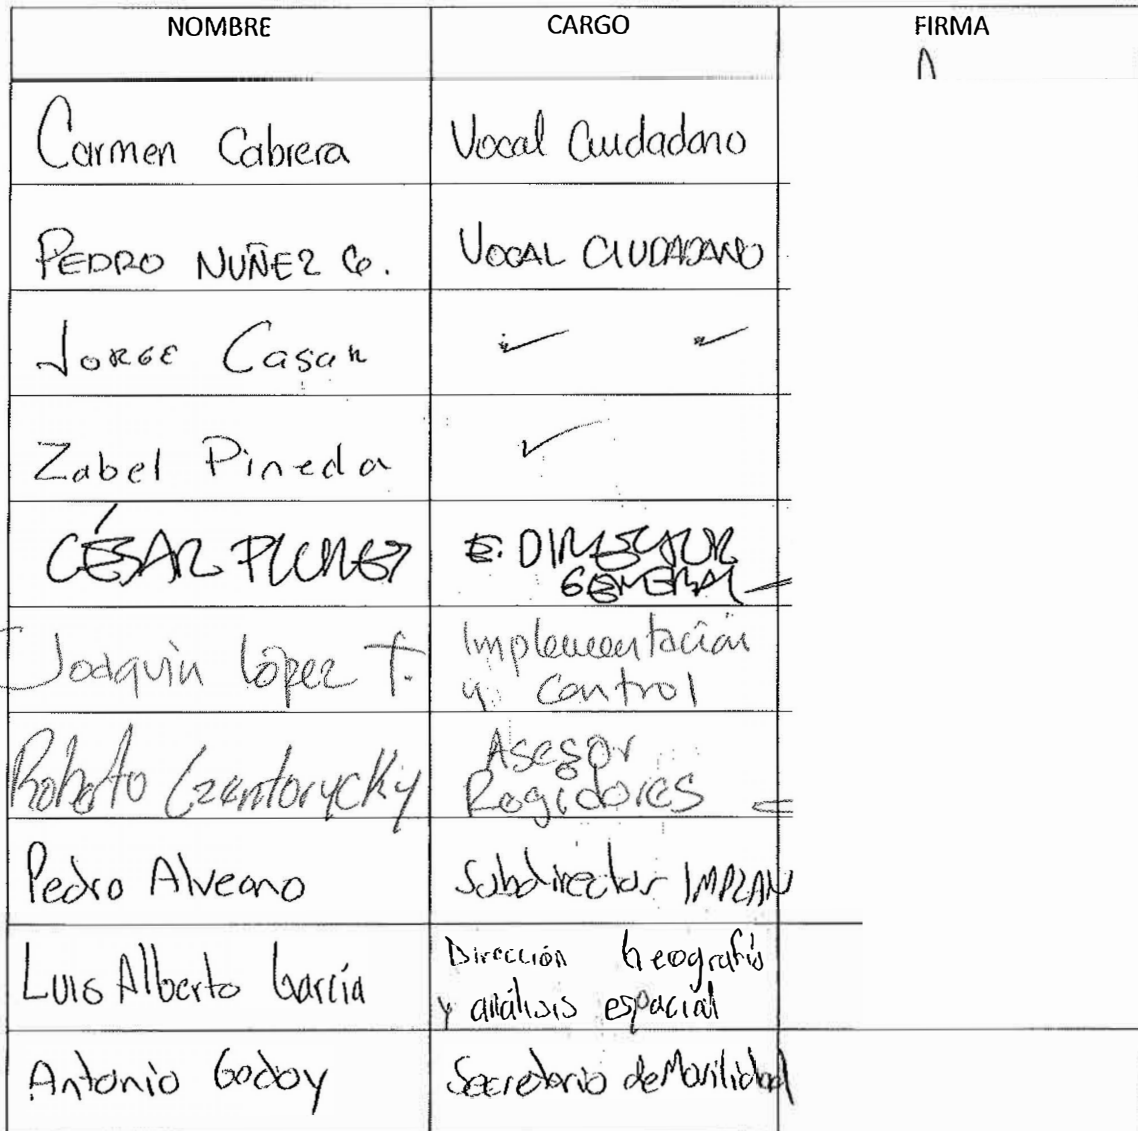 NOMBRE CARGO FIRMA
Carmen Cabrera Vocal Ciudadano
PEDRO NUÑEZ G. VOCAL CIUDADANO
JORGE Casar
Zabel Pineda
CÉSAR E. DIRECTOR
GENERAL
Joaquín López T. Implementación
y control
Roberto Czantorycky Asesor
Regidores
Pedro Alveano Subdirector IMPLAN
Luis Alberto García Dirección Geografía
y análisis espacial
Antonio Godoy Secretario de Movilidad